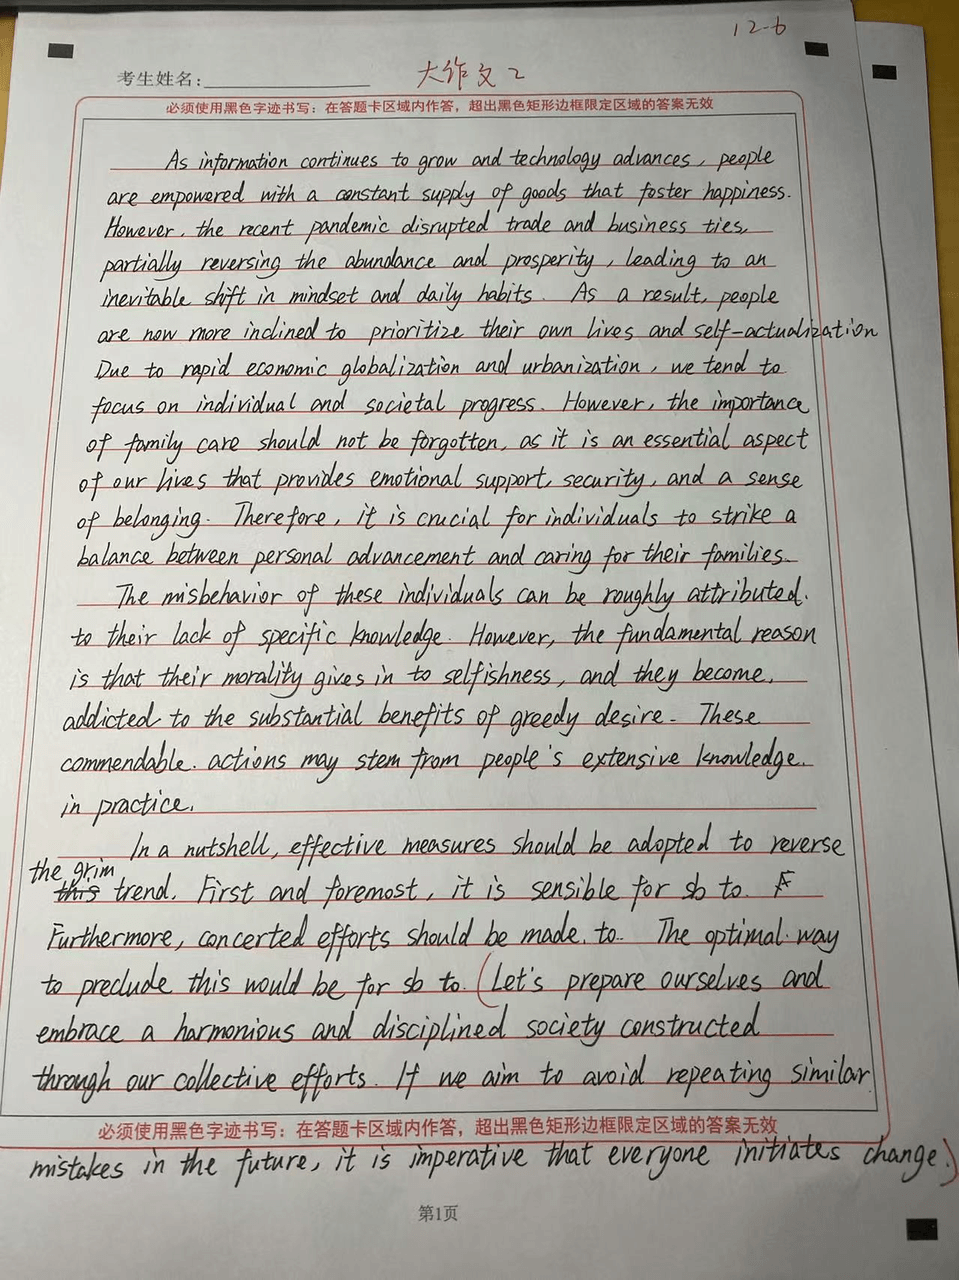 12-6
考生姓名:
大作文2
必须使用黑色字迹书写：在答题卡区域内作答，超出黑色矩形边框限定区域的答案无效
As information continues to grow and technology advances, people
are empowered with a constant supply of goods that foster happiness.
However, the recent pandemic disrupted trade and business ties,
partially reversing the abundance and prosperity, leading to an
inevitable shift in mindset and daily habits. As a result, people
are now more inclined to prioritize their own lives and self-actualization
Due to rapid economic globalization and urbanization, we tend to
focus on individual and societal progress. However, the importance
of family care should not be forgotten, as it is an essential aspect
of our lives that provides emotional support, security, and a sense
of belonging. Therefore, it is crucial for individuals to strike a
balance between personal advancement and caring for their families.
The misbehavior of these individuals can be roughly attributed.
to their lack of specific knowledge. However, the fundamental reason
is that their morality gives in to selfishness, and they become.
addicted to the substantial benefits of greedy desire. These
commendable. actions may stem from people's extensive knowledge.
in practice.
In a nutshell, effective measures should be adopted to reverse
the grim
this trend. First and foremost, it is sensible for sb to. F
Furthermore, concerted efforts should be made. to.. The optimal way
to preclude this would be for sb to. (Let's prepare ourselves and
embrace a harmonious and disciplined society constructed
through our collective efforts. If we aim to avoid repeating similar
必须使用黑色字迹书写：在答题卡区域内作答，超出黑色矩形边框限定区域的答案无效
mistakes in the future, it is imperative that everyone initiates change.)
第1页